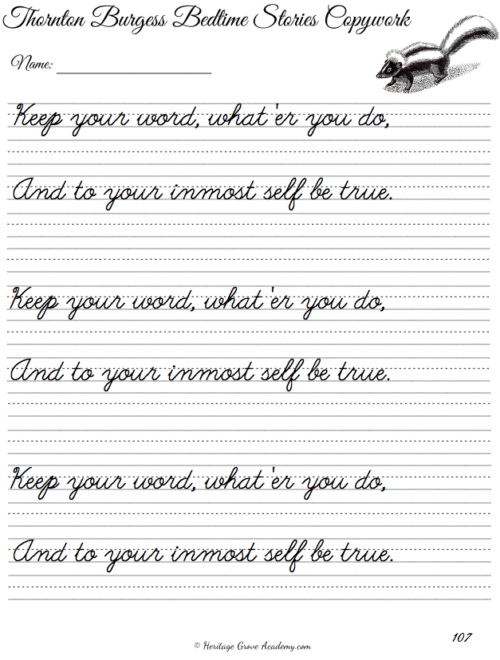 Thornton Burgess Bedtime Stories Copywork
Name:
Keep your word, what 'er you do,
And to your inmost self be true.
Keep your word, what 'er you do,
And to your inmost self be true.
Keep your word, what 'er you do,
And to your inmost self be true.
107
© Heritage Grove Academy.com